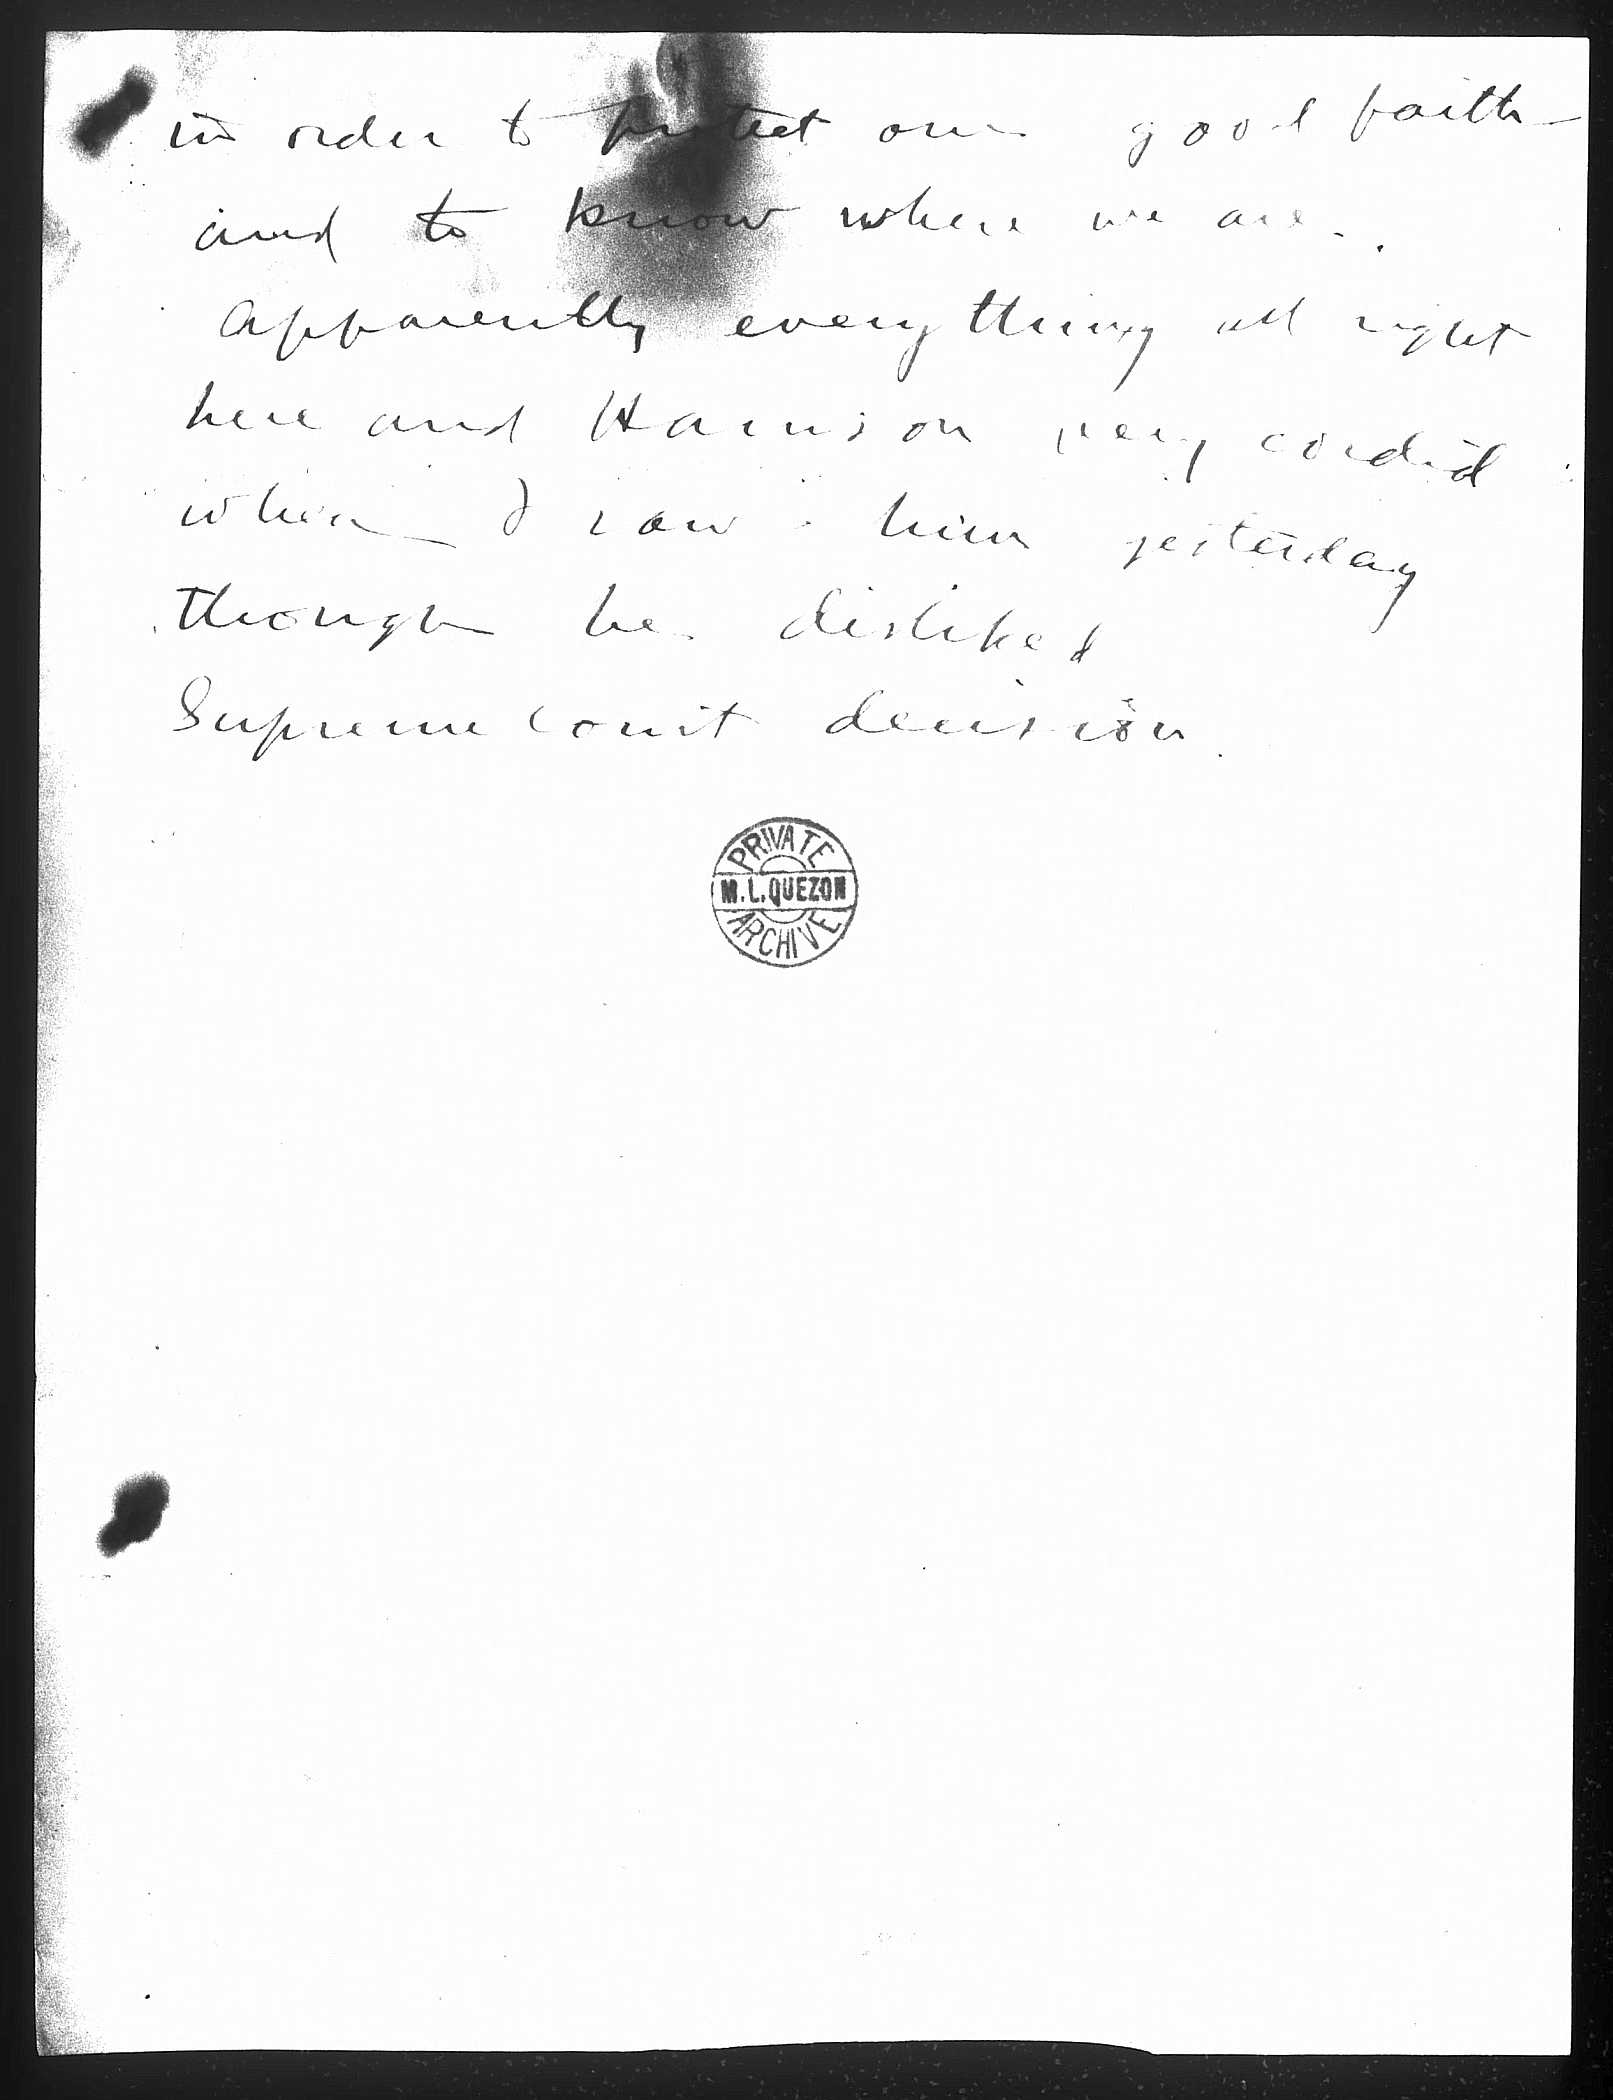 in order to protect our good faith
and to know where we are.
Apparently everything all right
here and Harrison very cordial
when I saw him yesterday
though he disliked
Supreme Court decision.
PRIVATE
M.L.QUEZON
ARCHIVE